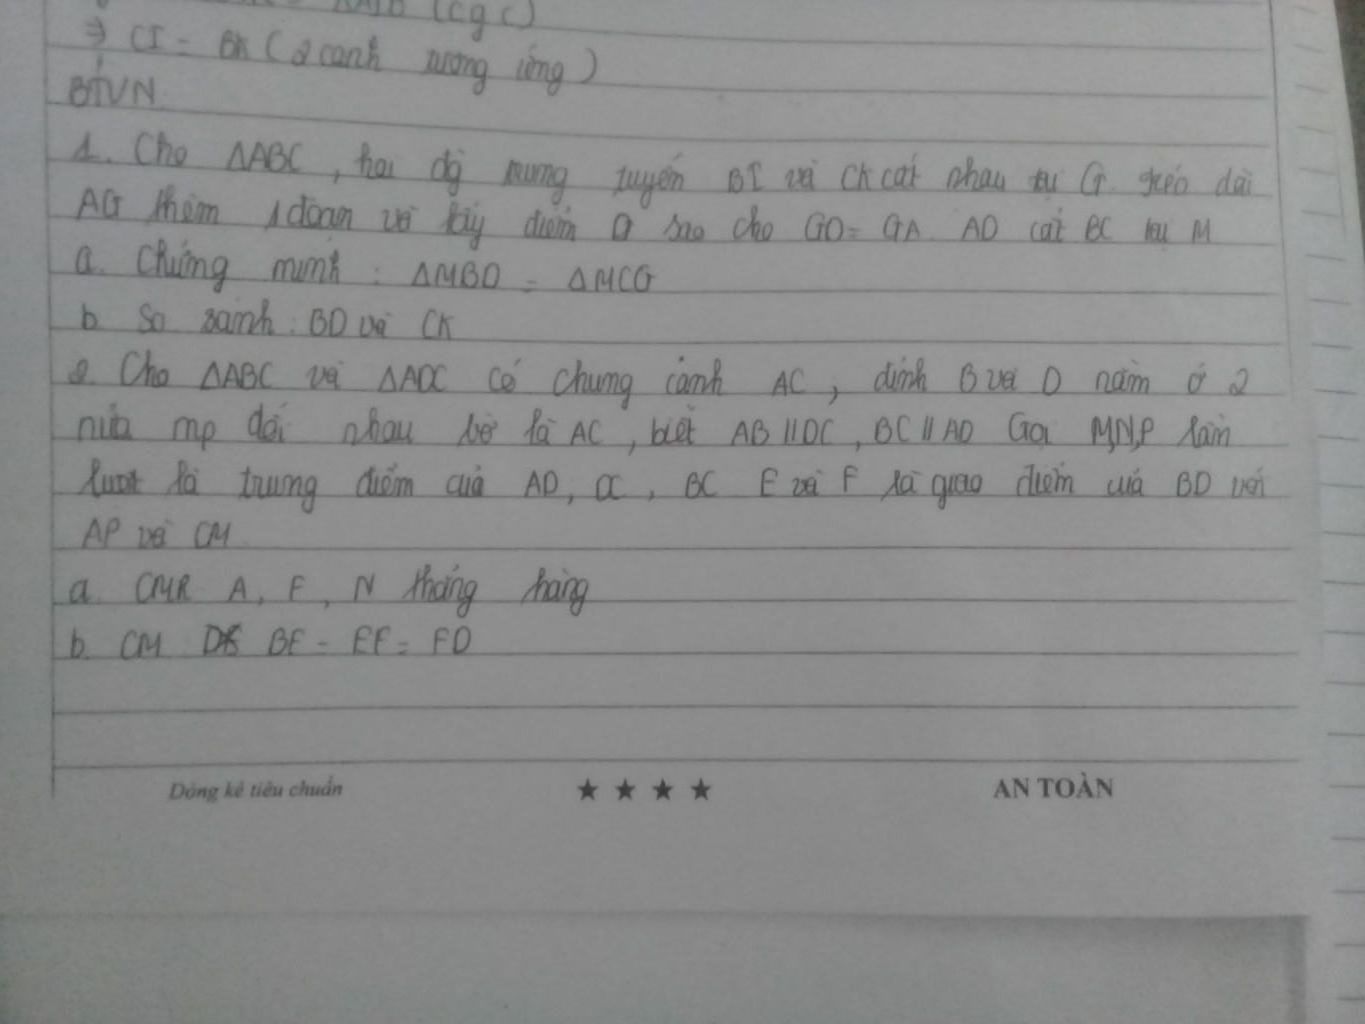 (cgc)
⇒ CI = BK (2 cạnh tương ứng)
BTVN
1. Cho ΔABC, hai đg trung tuyến BI và CK cắt nhau tại G. kéo dài
AG thêm 1 đoạn và lấy điểm D sao cho GD = GA. AD cắt BC tại M
a. Chứng minh: ΔMBD = ΔMCG
b. So sánh: BD và CK
2. Cho ΔABC và ΔADC có chung cạnh AC, đỉnh B và D nằm ở 2
nửa mp đối nhau bờ là AC, biết AB // DC, BC // AD. Gọi M,N,P lần
lượt là trung điểm của AD, DC, BC. E và F là giao điểm của BD với
AP và CM
a. CMR A, F, N thẳng hàng
b. CM BE = EF = FD
Dòng kẻ tiêu chuẩn ★ ★ ★ ★ AN TOÀN